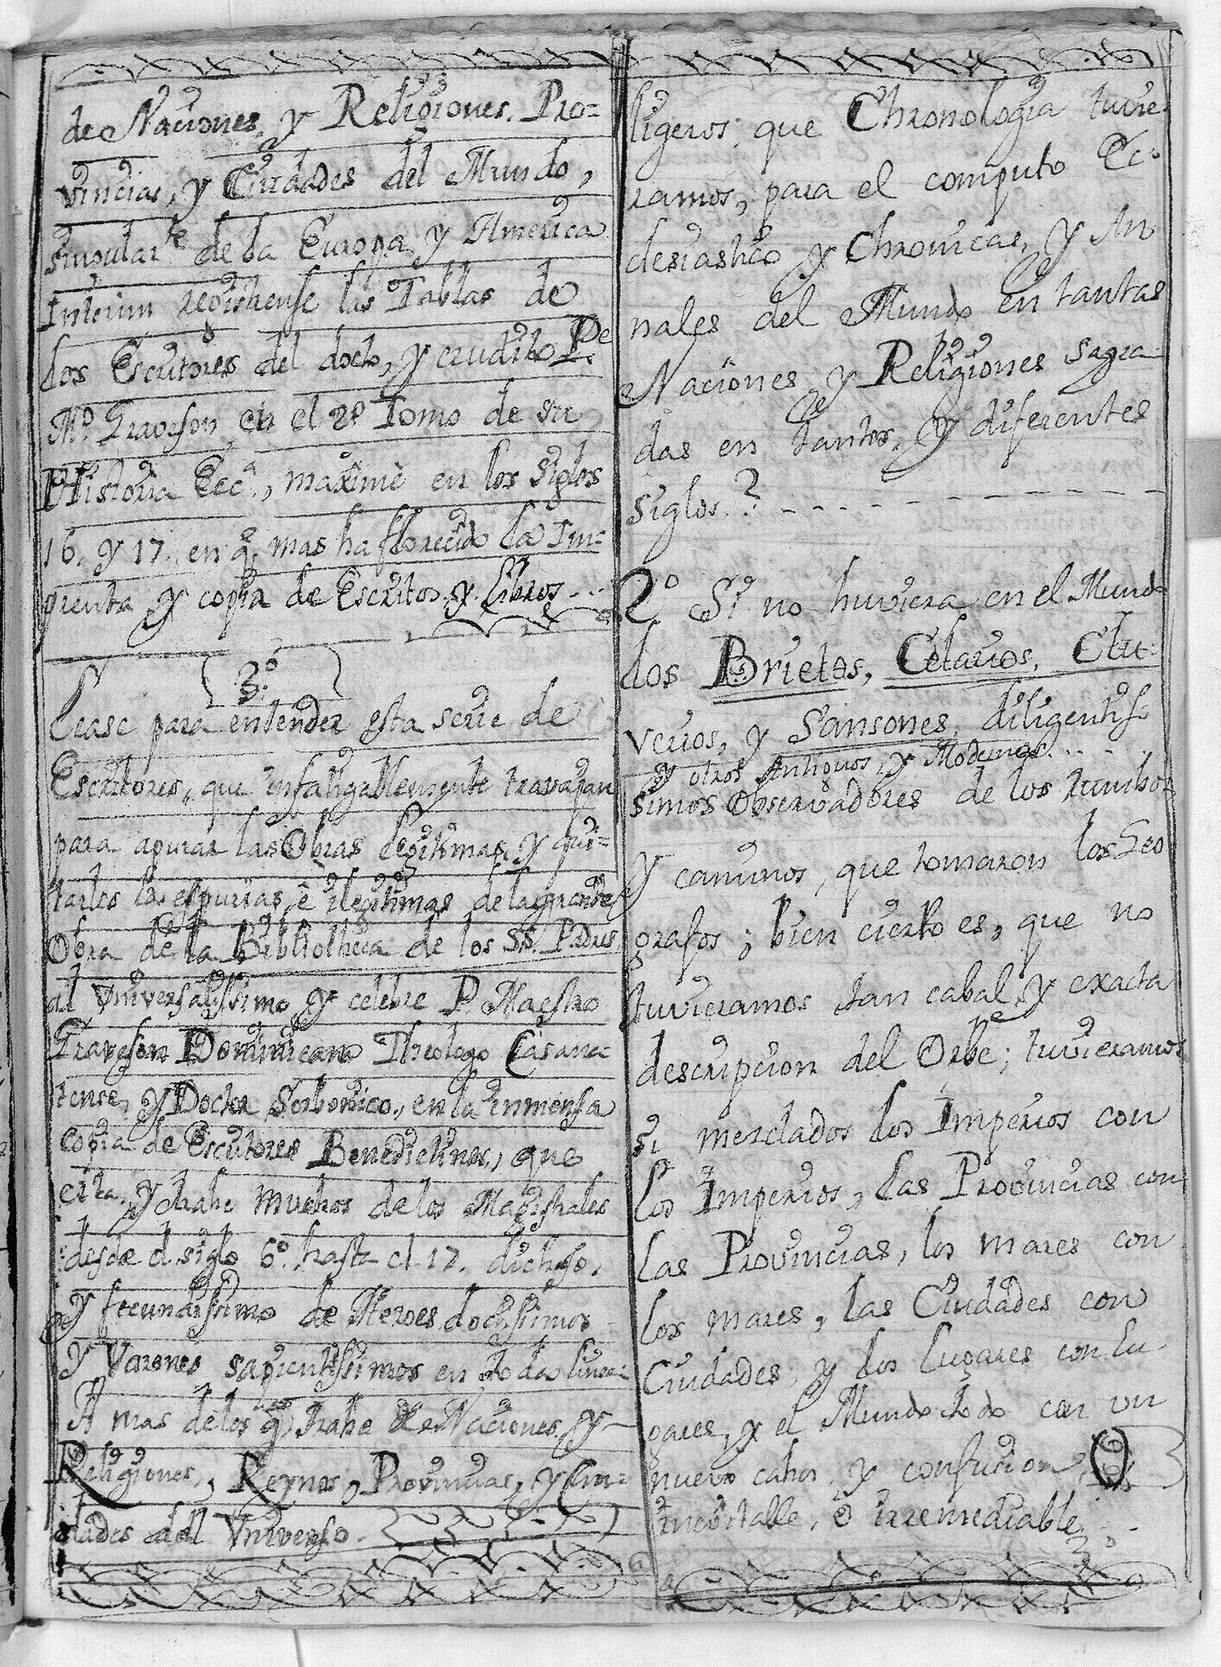 de Naciones, y Religiones. Pro=
vincias, y Ciudades del Mundo,
singular.te de la Europa, y America
Interim registrense las Tablas de
los Escritores del docto, y erudito P.e
M.o Graveson en el 2.o Tomo de su
Historia Ecc.a, maximè en los siglos
16. y 17. en q. mas ha florecido la Im=
prenta y copia de Escritos, y Libros...
3.o
Lease para entender esta serie de
Escritores, que infatigablemente travajan
para apurar las Obras legitimas, y qui=
tarles las espurias, è ilegitimas de la grande
Obra de la Bibliotheca de los SS. Padres
al Universalissimo y celebre P. Maestro
Graveson Dominicano Theologo Casana=
tense, y Doctor Sorbonico, en la inmensa
copia de Escritores Benedictinos, que
cita, y trahe muchos de los Magistrales
desde el siglo 6.o hasta el 17. dichoso,
y fecundissimo de Heroes doctissimos
y Varones sapientissimos en toda linea.
A mas de los q. trahe de Naciones, y
Religiones, Reynos, Provincias, y Ciu=
dades del Universo.
ligeros que Chronologia tuvie
ramos, para el computo Ec=
clesiastico y Chronicas, y An
nales del Mundo en tantas
Naciones y Religiones Sagra=
das en tantos, y diferentes
siglos?
2.o Si no huviera en el Mund
dos Brietos, Celarios, Clu=
verios, y Sansones, diligentis
y otros Antiguos, y Modernos
simos Observadores de los rumbos,
y caminos, que tomaron los Geo
grafos; bien cierto es, que no
tuvieramos tan cabal, y exacta
descripcion del Orbe; tuvieramos
si mezclados los Imperios con
los Imperios, las Provincias con
las Provincias, los mares con
los mares, las Ciudades con
Ciudades, y los Lugares con Lu=
gares, y el Mundo todo con un
nuevo cahos, y confusion,
inevitable, è irremediable
3.o